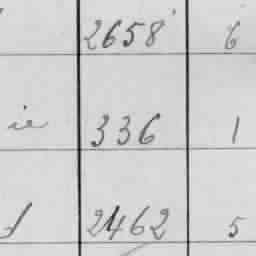 2658 6
ie 336 1
2462 5